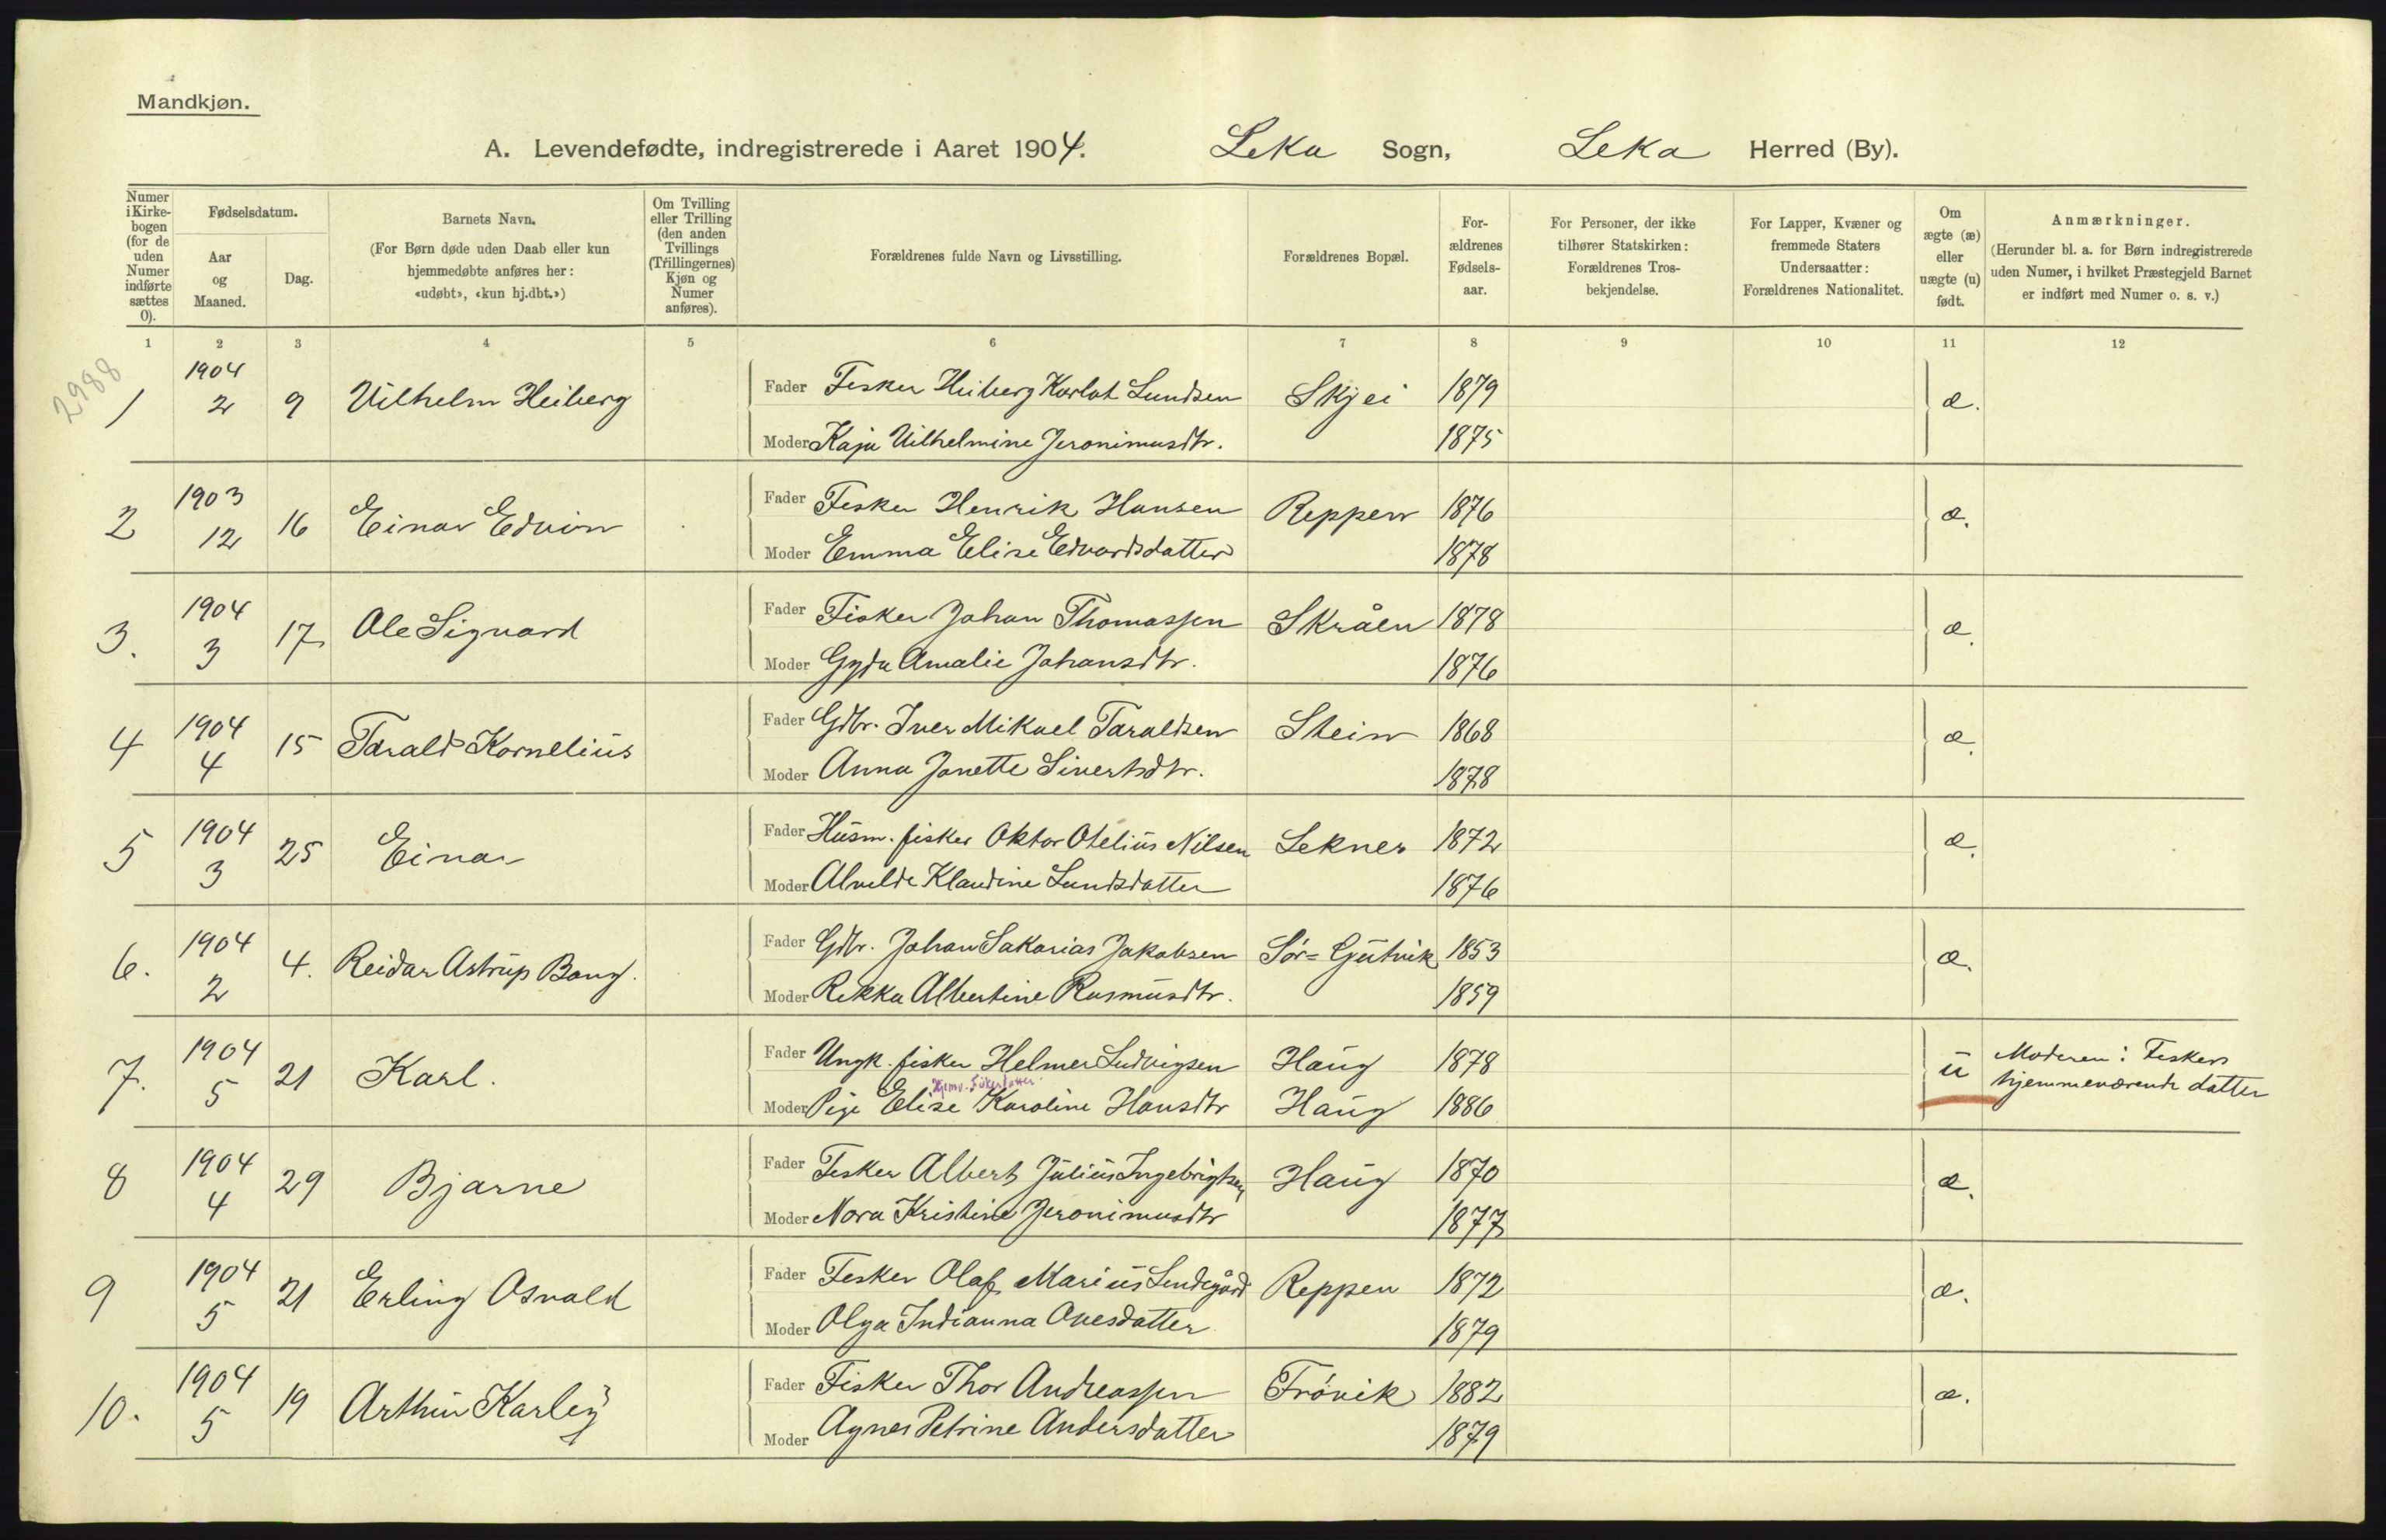 Mandkjøn.
A. Levendefødte, indregistrerede i Aaret 1904. Leka Sogn, Leka Herred (By).
Numer i Kirke-bogen (for de uden Numer indførte sættes 0).
Fødselsdatum.
Aar og Maaned.
Dag.
Barnets Navn.
(For Børn døde uden Daab eller kun hjemmedøbte anføres her: «udøbt», «kun hj.dbt.»)
Om Tvilling eller Trilling (den anden Tvillings (Trillingernes) Kjøn og Numer anføres).
Forældrenes fulde Navn og Livsstilling.
Forældrenes Bopæl.
For-ældrenes Fødsels-aar.
For Personer, der ikke tilhører Statskirken: Forældrenes Tros-bekjendelse.
For Lapper, Kvæner og fremmede Staters Undersaatter: Forældrenes Nationalitet.
Om ægte (æ) eller uægte (u) født.
Anmærkninger.
(Herunder bl. a. for Børn indregistrerede uden Numer, i hvilket Præstegjeld Barnet er indført med Numer o. s. v.)
1 2 3 4 5 6 7 8 9 10 11 12
2988
1 1904 2 9 Vilhelm Heiberg Fader Fisker Heiberg Karlot Lundsen Skjei 1879 æ.
Moder Kaja Vilhelmine Jeronimusdtr. 1875
2 1903 12 16 Einar Edvin Fader Fisker Henrik Hansen Reppen 1876 æ.
Moder Emma Elise Edvardsdatter 1878
3. 1904 3 17 Ole Sigvard Fader Fisker Johan Thomassen Skråen 1878 æ.
Moder Gyda Amalie Johansdtr. 1876
4 1904 4 15 Tarald Kornelius Fader Gdbr. Iver Mikael Taraldsen Stein 1868 æ.
Moder Anna Janette Sivertsdtr. 1878
5 1904 3 25 Einar Fader Husm. fisker Oktor Otelius Nilsen Lekner 1872 æ.
Moder Alvilde Klaudine Lundsdatter 1876
6. 1904 2 4. Reidar Astrup Bang. Fader Gdbr. Johan Sakarias Jakobsen Sør=Gutvik 1853 æ.
Moder Rikka Albertine Rasmusdtr. 1859
7. 1904 5 21 Karl. Fader Ungk. fisker Helmer Ludvigsen Haug 1878 u Moderen: Fiskers
hjemmeværende datter
Moder Pige Elise Karoline Hansdtr Haug 1886
8 1904 4 29 Bjarne Fader Fisker Albert Julius Ingebrigtsen Haug 1870 æ.
Moder Nora Kristine Jeronimusdtr 1877
9 1904 5 21 Erling Osvald Fader Fisker Olaf Marius Lindegård Reppen 1872 æ.
Moder Olga Indianna Ovesdatter 1879
10. 1904 5 19 Arthur Karley Fader Fisker Thor Andreassen Frøvik 1882 æ.
Moder Agnes Petrine Andersdatter 1879